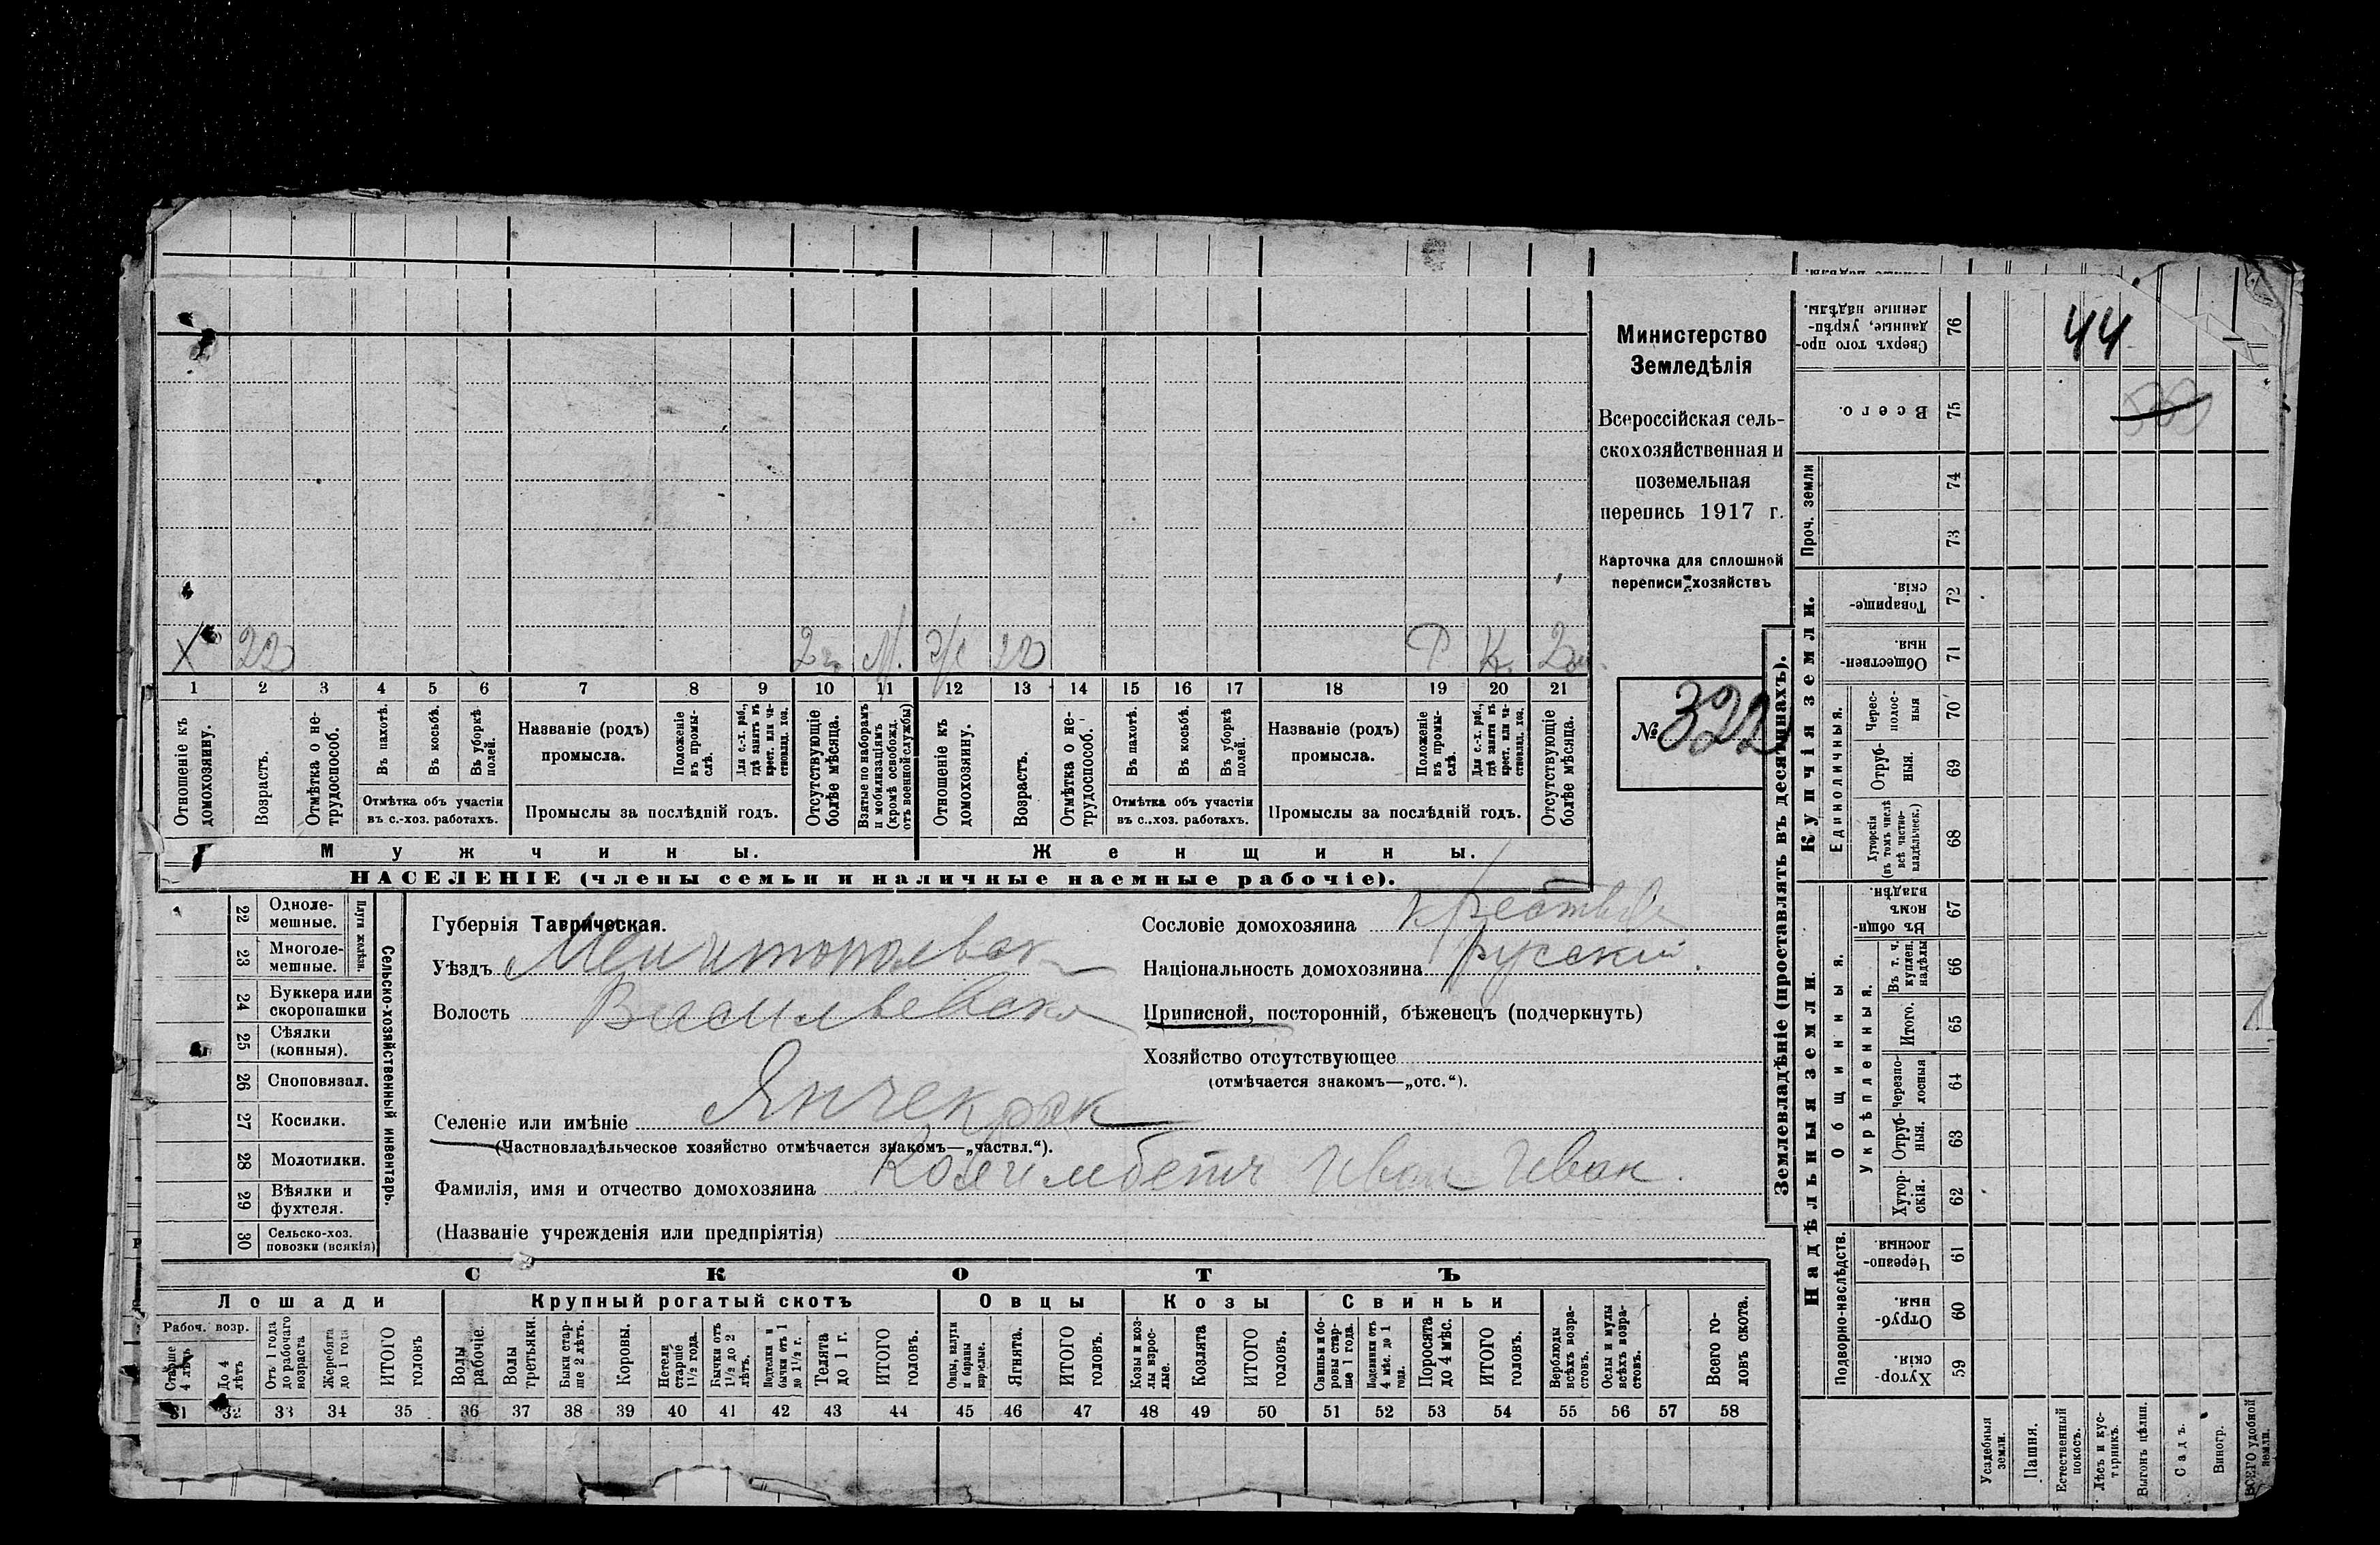 44
Х 22 2 М. Ж 22 Р К. 2
1 2 3 4 5 6 7 8 9 10 11 12 13 14 15 16 17 18 19 20 21
Отношеніе къ домохозяину.
Возрастъ.
Отмѣтка о нетрудоспособ.
Въ пахотѣ.
Въ косьбѣ.
Въ уборкѣ полей.
Отмѣтка объ участіи
въ с.-хоз. работахъ.
Названіе (родъ)
промысла.
Положеніе въ промыслѣ.
Для с.-х. раб., гдѣ занятъ въ крест. или частновлад. хоз.
Промыслы за послѣдній годъ.
Отсутствующіе болѣе мѣсяца.
Взятые по наборамъ и мобилизаціямъ (кромѣ освобожд. отъ военной службы)
Отношеніе къ домохозяину.
Возрастъ.
Отмѣтка о нетрудоспособ.
Въ пахотѣ.
Въ косьбѣ.
Въ уборкѣ полей.
Отмѣтка объ участіи
въ с.-хоз. работахъ.
Названіе (родъ)
промысла.
Положеніе въ промыслѣ.
Для с.-х. раб., гдѣ занята въ крест. или частновлад. хоз.
Промыслы за послѣдній годъ.
Отсутствующіе болѣе мѣсяца.
Мужчины.
Женщины.
НАСЕЛЕНІЕ (члены семьи и наличные наемные рабочіе).
Министерство
Земледѣлія
Всероссійская сель-
скохозяйственная и
поземельная
перепись 1917 г.
Карточка для сплошной
переписи хозяйствъ
№ 322
22 Однолемешные.
23 Многолемешные.
Плуги желѣзн.
24 Буккера или скоропашки
25 Сѣялки (конныя).
26 Сноповязал.
27 Косилки.
28 Молотилки.
29 Вѣялки и фухтеля.
30 Сельско-хоз. повозки (всякія)
Сельско-хозяйственный инвентарь.
Губернія Таврическая.
Уѣздъ Мелитопольск
Волость Васильевска
Селеніе или имѣніе Янчекрак
(Частновладѣльческое хозяйство отмѣчается знакомъ—„частвл.“).
Фамилія, имя и отчество домохозяина Иван Иван.
(Названіе учрежденія или предпріятія)
Сословіе домохозяина
Національность домохозяина русский.
Приписной, посторонній, бѣженецъ (подчеркнуть)
Хозяйство отсутствующее
(отмѣчается знакомъ—„отс.“).
СКОТЪ
Лошади
Крупный рогатый скотъ
Овцы
Козы
Свиньи
Рабоч. возр.
Старше 4 лѣтъ
До 4 лѣтъ
Отъ 1 года до рабочаго возраста
Жеребята до 1 года
ИТОГО головъ
Волы рабочіе.
Волы третьяки.
Быки старше 2 лѣтъ.
Коровы.
Нетели старше 1½ года.
Бычки отъ 1½ до 2 лѣтъ.
Подтелки и бычки отъ 1 до 1½ г.
Телята до 1 г.
ИТОГО головъ.
Овцы, валухи и бараны взрослые.
Ягнята.
ИТОГО головъ.
Козы и козлы взрослые.
Козлята
ИТОГО головъ.
Свиньи и боровы старше 1 года.
Подсвинки отъ 4 мѣс. до 1 года.
Поросята до 4 мѣс.
ИТОГО головъ.
Верблюды всѣхъ возрастовъ.
Ослы и мулы всѣхъ возрастовъ.
Всего головъ скота.
31 32 33 34 35 36 37 38 39 40 41 42 43 44 45 46 47 48 49 50 51 52 53 54 55 56 57 58
Землевладѣніе (проставлять въ десятинахъ).
Надѣльныя земли.
Купчія земли.
Проч. земли
Подворно-наслѣдств.
Общинныя.
Укрѣпленныя.
Единоличныя.
Сверхъ того проданные, укрѣпленные надѣлы. 76
Всего. 75
74
73
Товарищескія. 72
Общественныя. 71
Чересполосныя 70
Отрубныя. 69
Хуторскія (въ томъ числѣ всѣ частновладѣльческ.) 68
Въ общинномъ владѣн. 67
Въ т. ч. куплен. надѣлы 66
Итого. 65
Черезполосныя 64
Отрубныя. 63
Хуторскія. 62
Черезполосныя. 61
Отрубныя. 60
Хуторскія. 59
Усадебныя земли.
Пашня.
Естественный покосъ.
Лѣсъ и кустарникъ.
Выгонъ цѣлин.
Садъ.
Виногр.
ВСЕГО удобной земли.